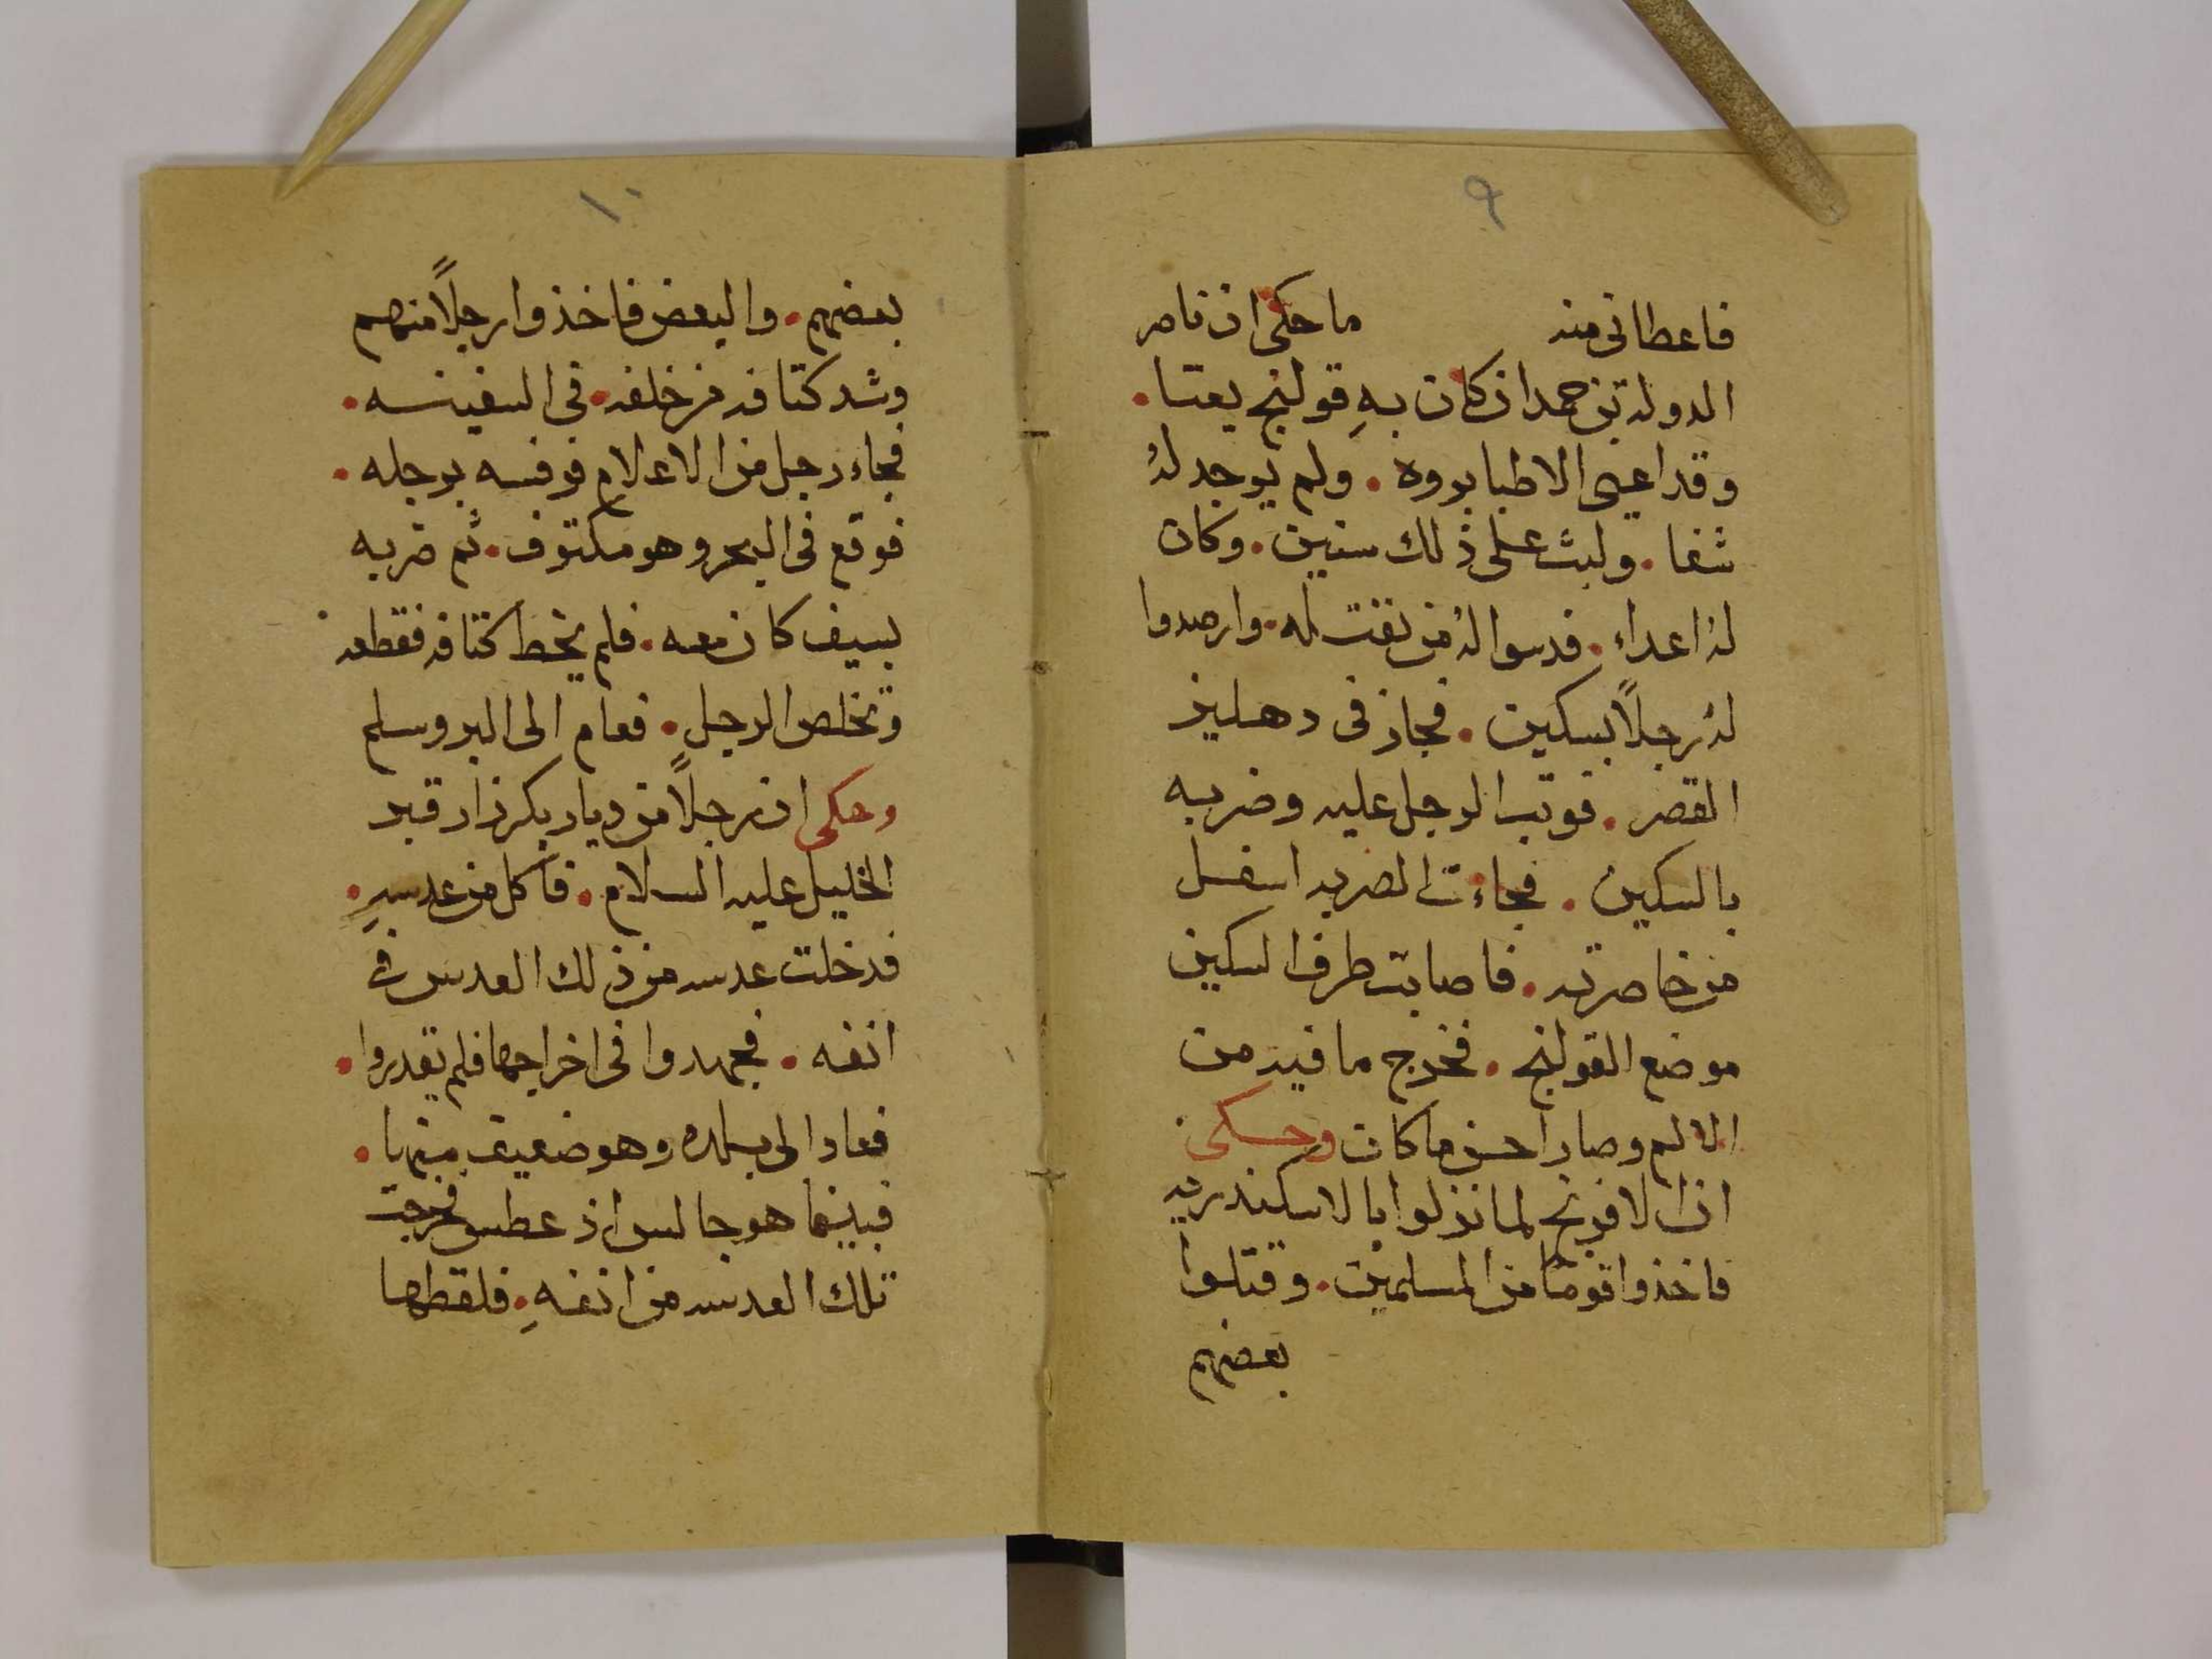 ٩
فاعطانى منه ما حكى ان ناصر
الدولة بن حمدان كان به قولنج يعتا.
وقد اعيى الاطبا بروه. ولم يوجد لهُ
شفا. ولبث على ذلك سنين. وكان
لهُ اعداء. فدسوا لهُ من يقتله. وارصدوا
لهُ رجلاً بسكين. فجاز فى دهليز
القصر. فوتب الرجل عليه وضربه
بالسكين. فجاءت الضربه اسفل
من خاصرته. فاصابت طرف السكين
موضع القولنج. فخرج ما فيه من
الالم وصار احسن ما كان وحكى
ان الافرنج لما نزلوا بالاسكندريه
فاخذوا قوماً من المسلمين. وقتلوا
بعضهم
١٠
بعضهم. والبعض فاخذوا رجلاً منهم
وشد كتافه من خلفه. فى السفينه.
فجاء رجل من الاعلام فرفسه برجله.
فوقع فى البحر وهو مكتوف. ثم ضربه
بسيف كان معه. فلم يخط كتافه فقطعه
وتخلص الرجل. فعام الى البر وسلم
وحكى ان رجلاً من ديار بكر زار قبر
الخليل عليه السلام. فاكل من عدسهِ.
فدخلت عدسه من ذلك العدس فى
انفه. فجهدوا فى اخراجها فلم يقدروا.
فعاد الى بلده وهو ضعيف منها.
فبينما هو جالس اذ عطس فخرجت
تلك العدسه من انفهِ. فلقطها